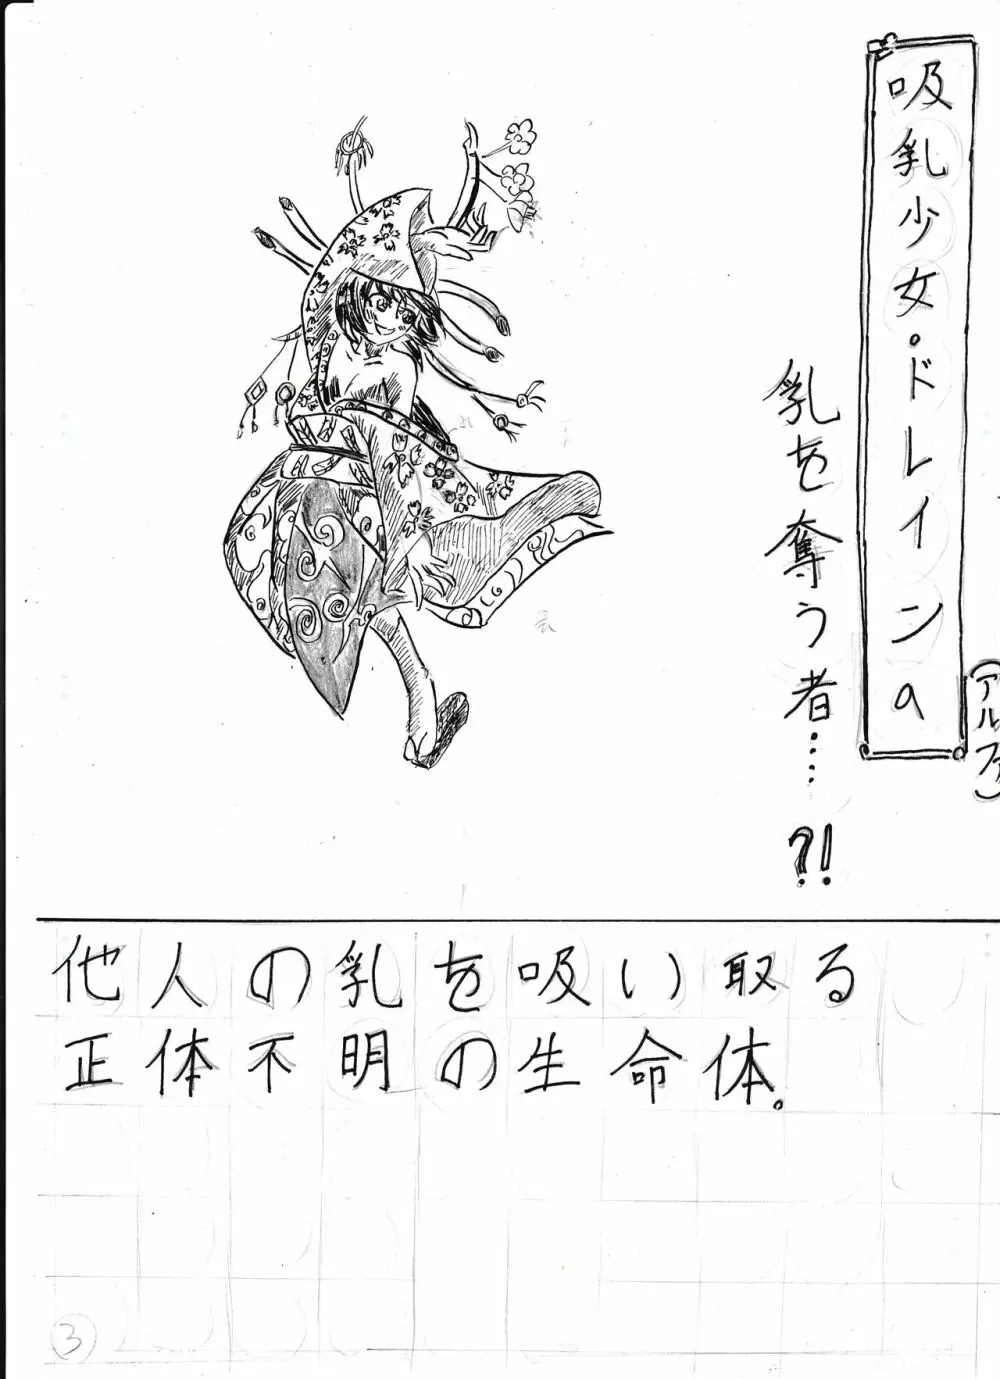 吸乳少女・ドレインα
(アルファ)
乳を奪う者……?!
他人の乳を吸い取る
正体不明の生命体。
3